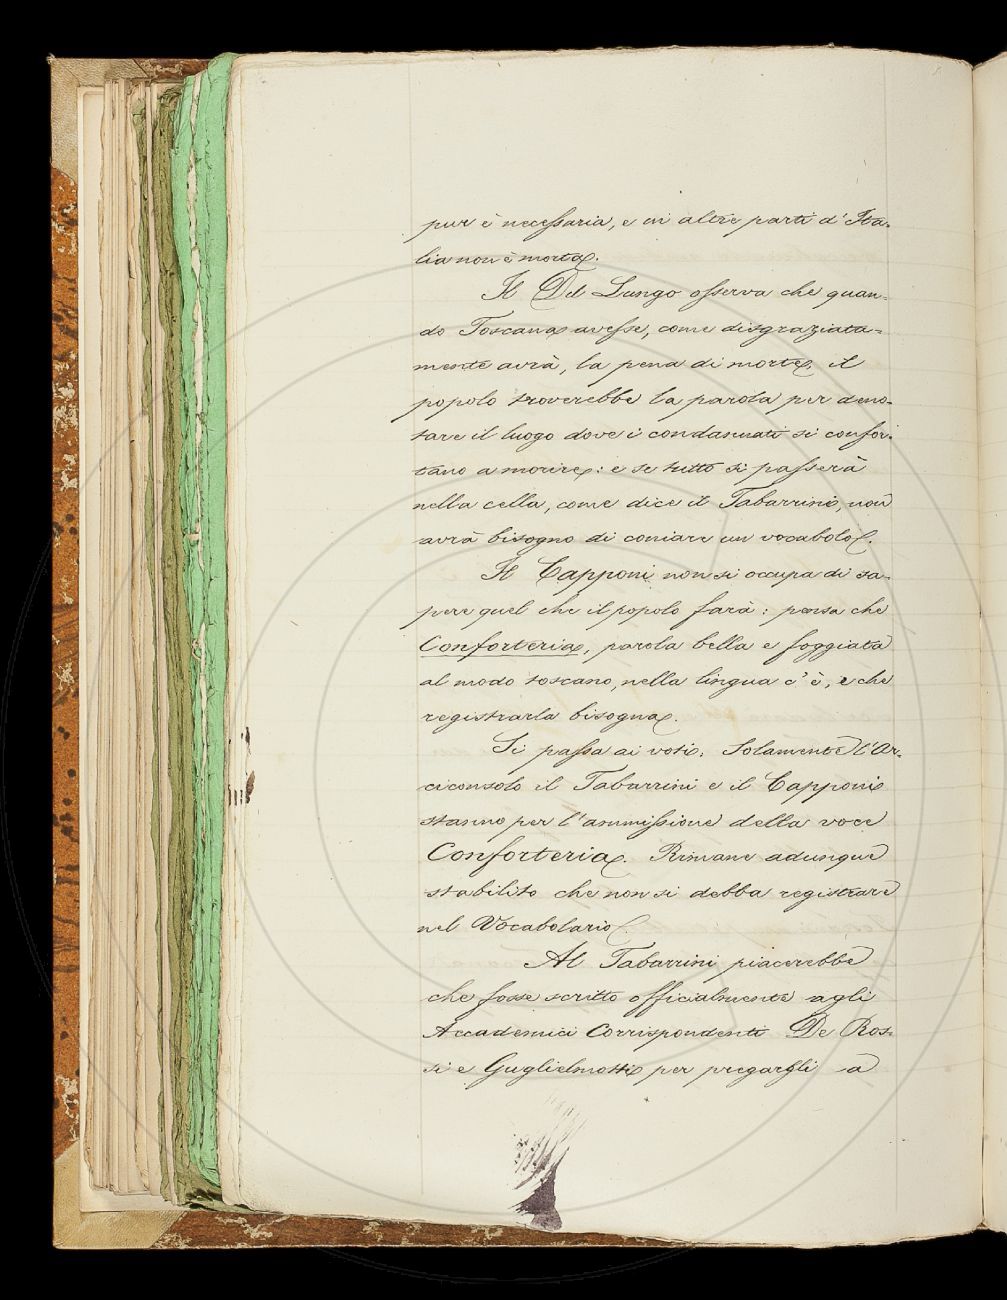 pur è necessaria, e in altre parti d'Ita-
lia non è morta.
Il Del Lungo osserva che quan-
do Toscana avesse, come disgraziata-
mente avrà, la pena di morte, il
popolo troverebbe la parola per deno-
tare il luogo dove i condannati si confor-
tano a morire: e se tutto si passerà
nella cella, come dice il Tabarrini, non
avrà bisogno di coniare un vocabolo.
Il Capponi non si occupa di sa-
pere quel che il popolo farà: pensa che
Conforteria, parola bella e foggiata
al modo toscano, nella lingua c'è, e che
registrarla bisogna.
Si passa ai voti. Solamente l'Ar-
ciconsolo il Tabarrini e il Capponi
stanno per l'ammissione della voce
Conforteria. Rimane adunque
stabilito che non si debba registrare
nel Vocabolario.
Al Tabarrini piacerebbe
che fosse scritto officialmente agli
Accademici Corrispondenti De Ros-
si e Guglielmotti per pregargli a